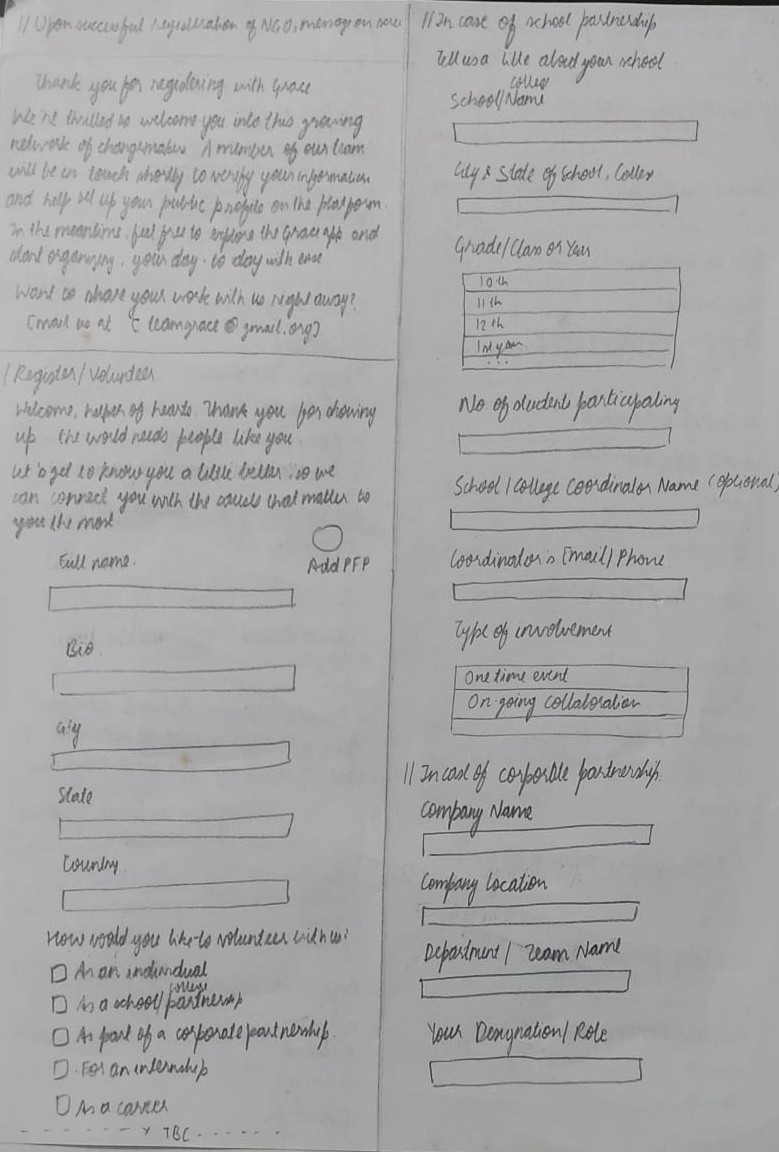 // Upon successful registration of NGO, message on screen
Thank you for registering with Grace
We're thrilled to welcome you into this growing
network of changemakers A member of our team
will be in touch shortly to verify your information
and help set up your public profile on the platform.
In the meantime, feel free to explore the Grace app and
start organising your day-to day with ease
Want to share your work with us right away?
Email us at [teamgrace@gmail.org]
/ Register/Volunteer
Welcome, helper of hearts. Thank you for showing
up. the world needs people like you.
Let's get to know you a little better, so we
can connect you with the causes that matter to
you the most
Add PFP
Full name.
Bio
City
State
Country
How would you like to volunteer with us?
As an individual
As a school/college partnership
As part of a corporate partnership.
For an internship
As a career
TBC
// In case of school partnership
Tell us a little about your school
School/college Name
City & State of School,
Grade/Class or Year
10th
11th
12th
1st year.
...
No. of students participating
School/College Coordinator Name (optional)
Coordinator's Email/Phone
Type of involvement
One time event
On-going collaboration
// In case of corporate partnership.
Company Name
Company Location
Department/ Team Name
Your Designation/Role